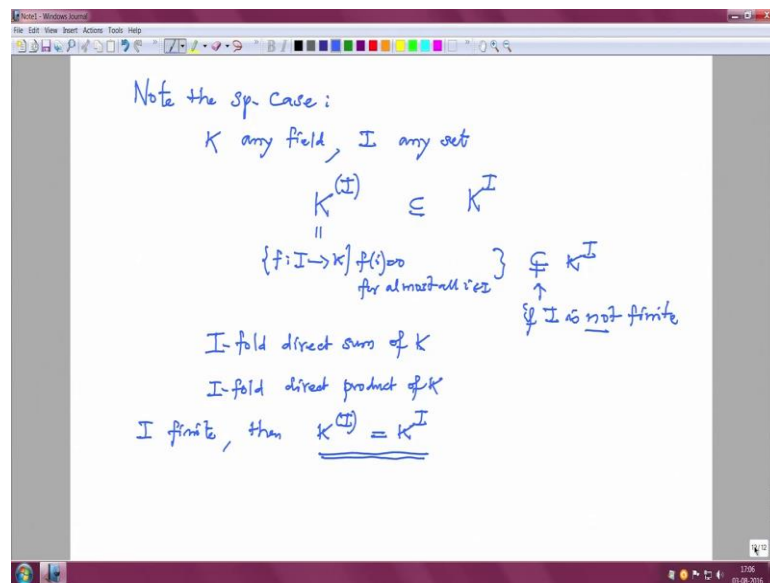 Note1 - Windows Journal
File Edit View Insert Actions Tools Help
Note the sp. case :
K any field, I any set
K^(I) ⊆ K^I
||
{f : I → K | f(i)=0 for almost all i∈I} ⊊ K^I
↑
if I is not finite
I-fold direct sum of K
I-fold direct product of K
I finite, then K^(I) = K^I
12/12
17:06
03-08-2016